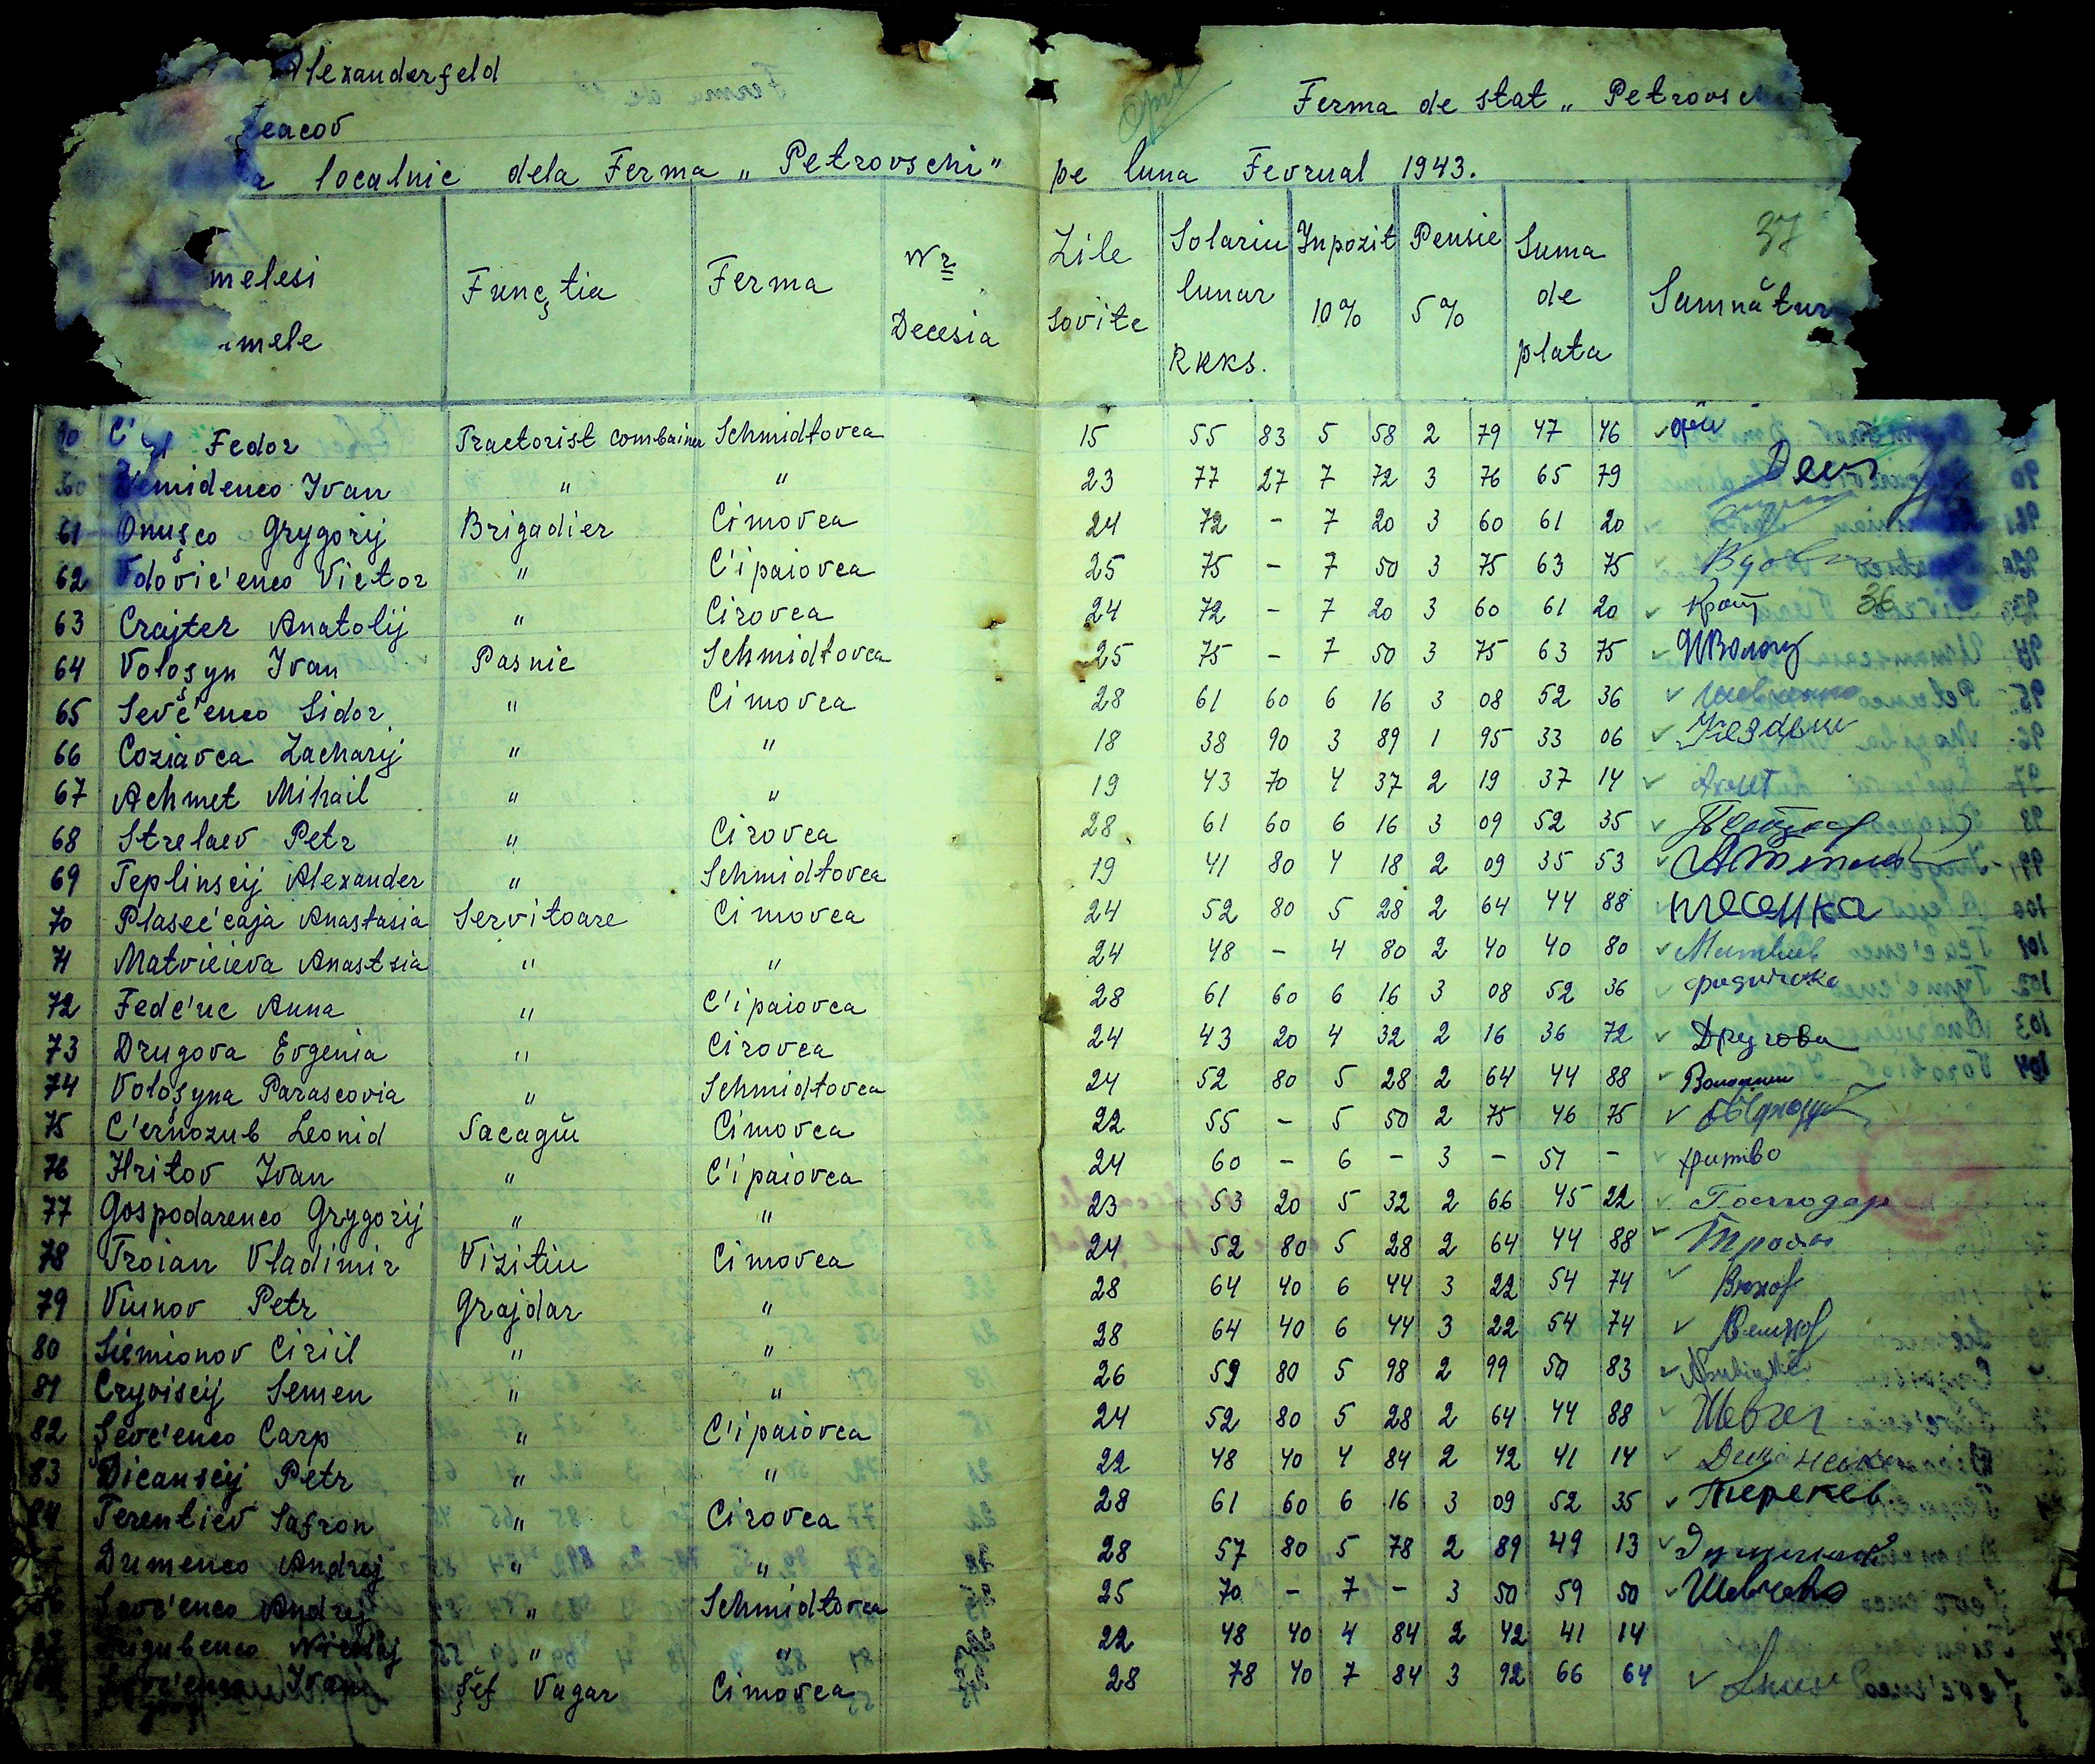 Alexanderfeld
Ferma de stat „ Petrovschi
localnic dela Ferma „ Petrovschi" pe luna Fevrual 1943.
37
melesi Funcţia Ferma Nr Decesia Zile Solariu lunar RKKS. Inpozit 10% Pensie 5% Suma de plata Samnătur
Fedor Tractorist combainer Schmidtovca 15 55 83 5 58 2 79 47 46
Demidenco Ivan " " 23 77 27 7 72 3 76 65 79
61 Onuşco Grygorij Brigadier Cimovca 24 72 - 7 20 3 60 61 20
62 Vdovic'enco Victor " C'ipaiovca 25 75 - 7 50 3 75 63 75
63 Crajter Anatolij " Cirovca 24 72 - 7 20 3 60 61 20 36
64 Voloşyn Ivan Pasnic Schmidtovca 25 75 - 7 50 3 75 63 75
65 Şevc'enco Sidor " Cimovca 28 61 60 6 16 3 08 52 36
66 Coziavca Zacharij " " 18 38 90 3 89 1 95 33 06
67 Achmet Mihail " " 19 43 70 4 37 2 19 37 14 Ахмет
68 Strelaev Petr " Cirovca 28 61 60 6 16 3 09 52 35
69 Teplinscij Alexander " Schmidtovca 19 41 80 4 18 2 09 35 53
70 Plasec'caja Anastasia Servitoare Cimovca 24 52 80 5 28 2 64 44 88
71 Matvieieva Anastsia " " 24 48 - 4 80 2 40 40 80
72 Fedc'uc Anna " C'ipaiovca 28 61 60 6 16 3 08 52 36
73 Drugova Evgenia " Cirovca 24 43 20 4 32 2 16 36 72 Другова
74 Voloşyna Parascovia " Schmidtovca 24 52 80 5 28 2 64 44 88
75 C'ernozub Leonid Sacagiu Cimovca 22 55 - 5 50 2 75 46 75
76 Hritov Ivan " C'ipaiovca 24 60 - 6 - 3 - 51 -
77 Gospodarenco Grygorij " " 23 53 20 5 32 2 66 45 22 Господар
78 Troian Vladimir Vizitiu Cimovca 24 52 80 5 28 2 64 44 88
79 Viunov Petr Grajdar " 28 64 40 6 44 3 22 54 74
80 Siemionov Ciriil " " 28 64 40 6 44 3 22 54 74
81 Cryviscij Semen " " 26 59 80 5 98 2 99 50 83
82 Şevc'enco Carp " C'ipaiovca 24 52 80 5 28 2 64 44 88
83 Dicanscij Petr " " 22 48 40 4 84 2 42 41 14
84 Terentiev Safron " Cirovca 28 61 60 6 16 3 09 52 35
Dumenco Andrej " " 28 57 80 5 78 2 89 49 13
Şevc'enco Andrej " Schmidtovca 25 70 - 7 - 3 50 59 50
" " 22 48 40 4 84 2 42 41 14
Ivan Şef Vagar Cimovca 28 78 40 7 84 3 92 66 64